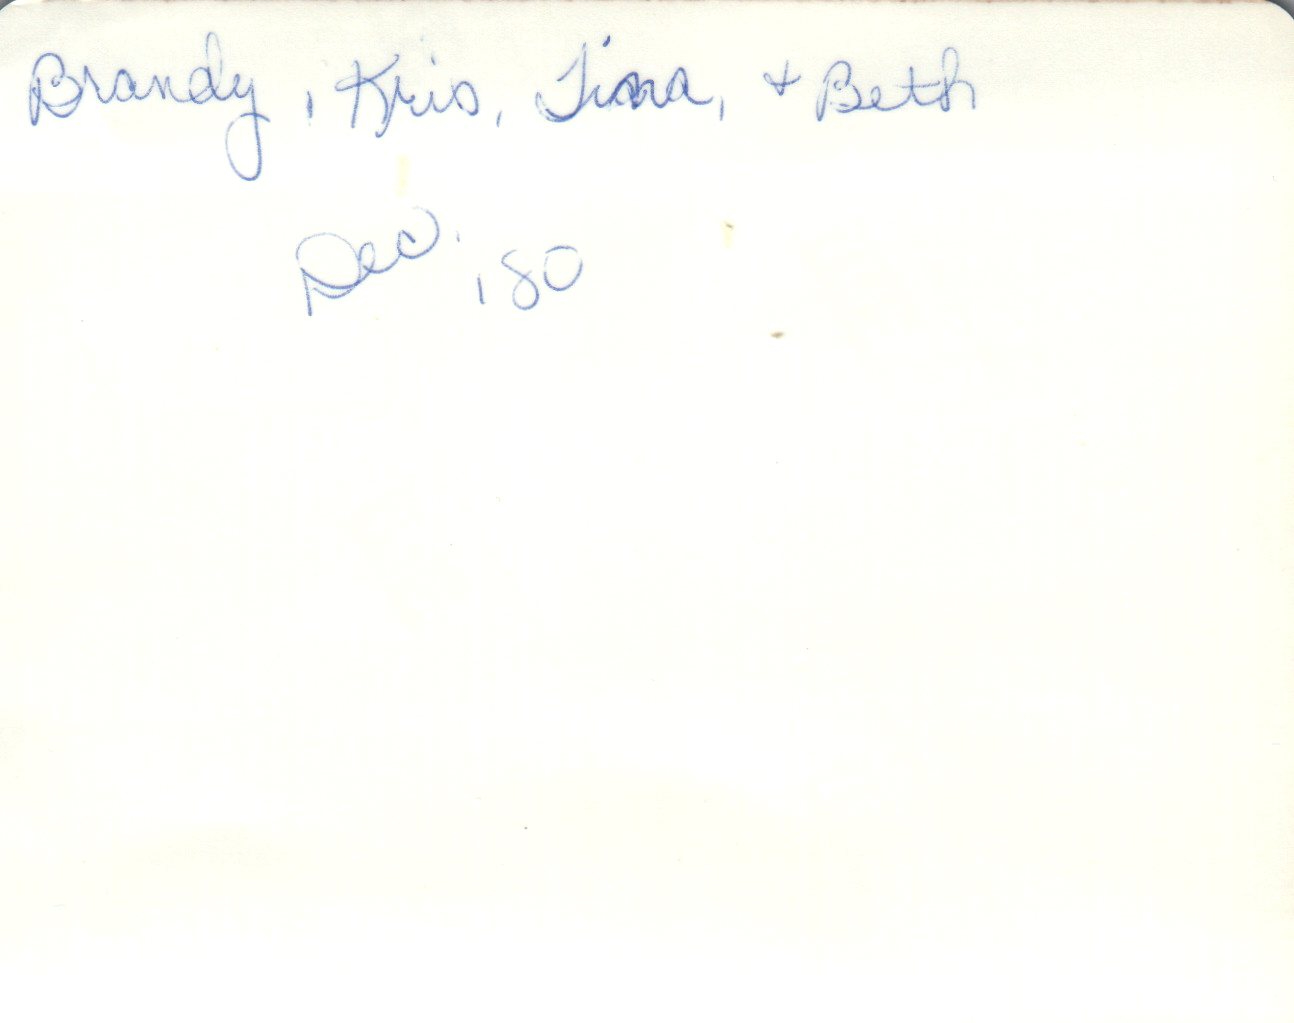 Brandy, Kris, Tina, + Beth
Dec. '80